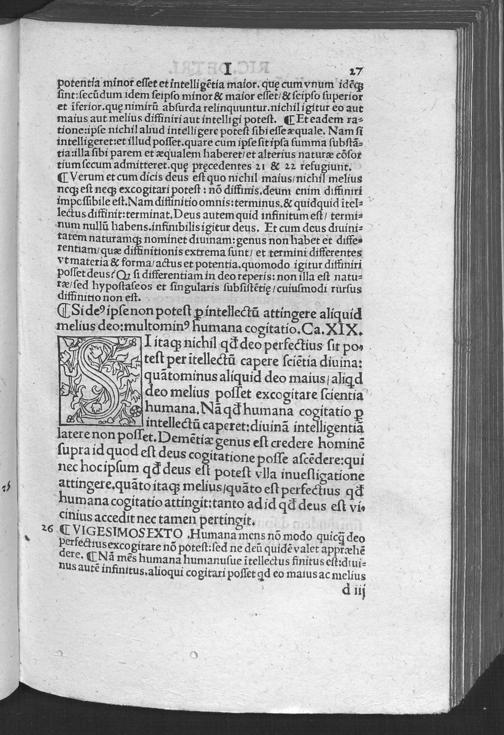 I 27
potentia minor esset et intelligētia maior. quę cum vnum idēq;
sint: secūdum idem seipso minor & maior esset/ & seipso superior
et īferior. quę nimirū absurda relinquuntur. nichil igitur eo aut
maius aut melius diffiniri aut intelligi potest. ¶ Et eadem ra-
tione: ipse nichil aliud intelligere potest sibi esse æquale. Nam si
intelligeret: et illud posset. quare cum ipse sit ipsa summa substā-
tia: illa sibi parem et æqualem haberet/ et alterius naturæ cōsor
tium secum admitteret. quę pręcedentes 21 & 22 refugiunt.
¶ Verum et cum dicis deus est quo nichil maius/ nichil melius
neq; est neq; excogitari potest: nō diffinis. deum enim diffiniri
impossibile est. Nam diffinitio omnis: terminus. & quidquid ītel-
lectus diffinit: terminat. Deus autem quid infinitum est/ termi-
num nullū habens. infinibilis igitur deus. Et cum deus diuini-
tatem naturamq; nominet diuinam: genus non habet et diffe-
rentiam/ quæ diffinitionis extrema sunt/ et termini differentes
vt materia & forma/ actus et potentia. quomodo igitur diffiniri
posset deus? Q; si differentiam in deo reperis: non illa est natu-
ræ/ sed hypostaseos et singularis subsistētię/ cuiusmodi rursus
diffinitio non est.
¶ Si deꝰ ipse non potest ꝑ intellectū attingere aliquid
melius deo: multominꝰ humana cogitatio. Ca. XIX.
SI itaq; nichil qđ deo perfectius sit po-
test per ītellectū capere sciētia diuina:
quātominus aliquid deo maius/ aliqđ
deo melius posset excogitare scientia
humana. Nā qđ humana cogitatio ꝑ
intellectū caperet: diuinā intelligentiā
latere non posset. Demētiæ genus est credere hominē
supra id quod est deus cogitatione posse ascēdere: qui
nec hoc ipsum qđ deus est potest vlla inuestigatione
attingere. quāto itaq; melius/ quāto est perfectius qđ
humana cogitatio attingit: tanto ad id qđ deus est vi-
cinius accedit nec tamen pertingit.
26 ¶ VIGESIMOSEXTO. Humana mens nō modo quicq̄ deo
perfectius excogitare nō potest: sed ne deū quidē valet appræhē
dere. ¶ Nā mēs humana humanusue ītellectus finitus est: diui-
nus autē infinitus. alioqui cogitari posset qđ eo maius ac melius
d iij